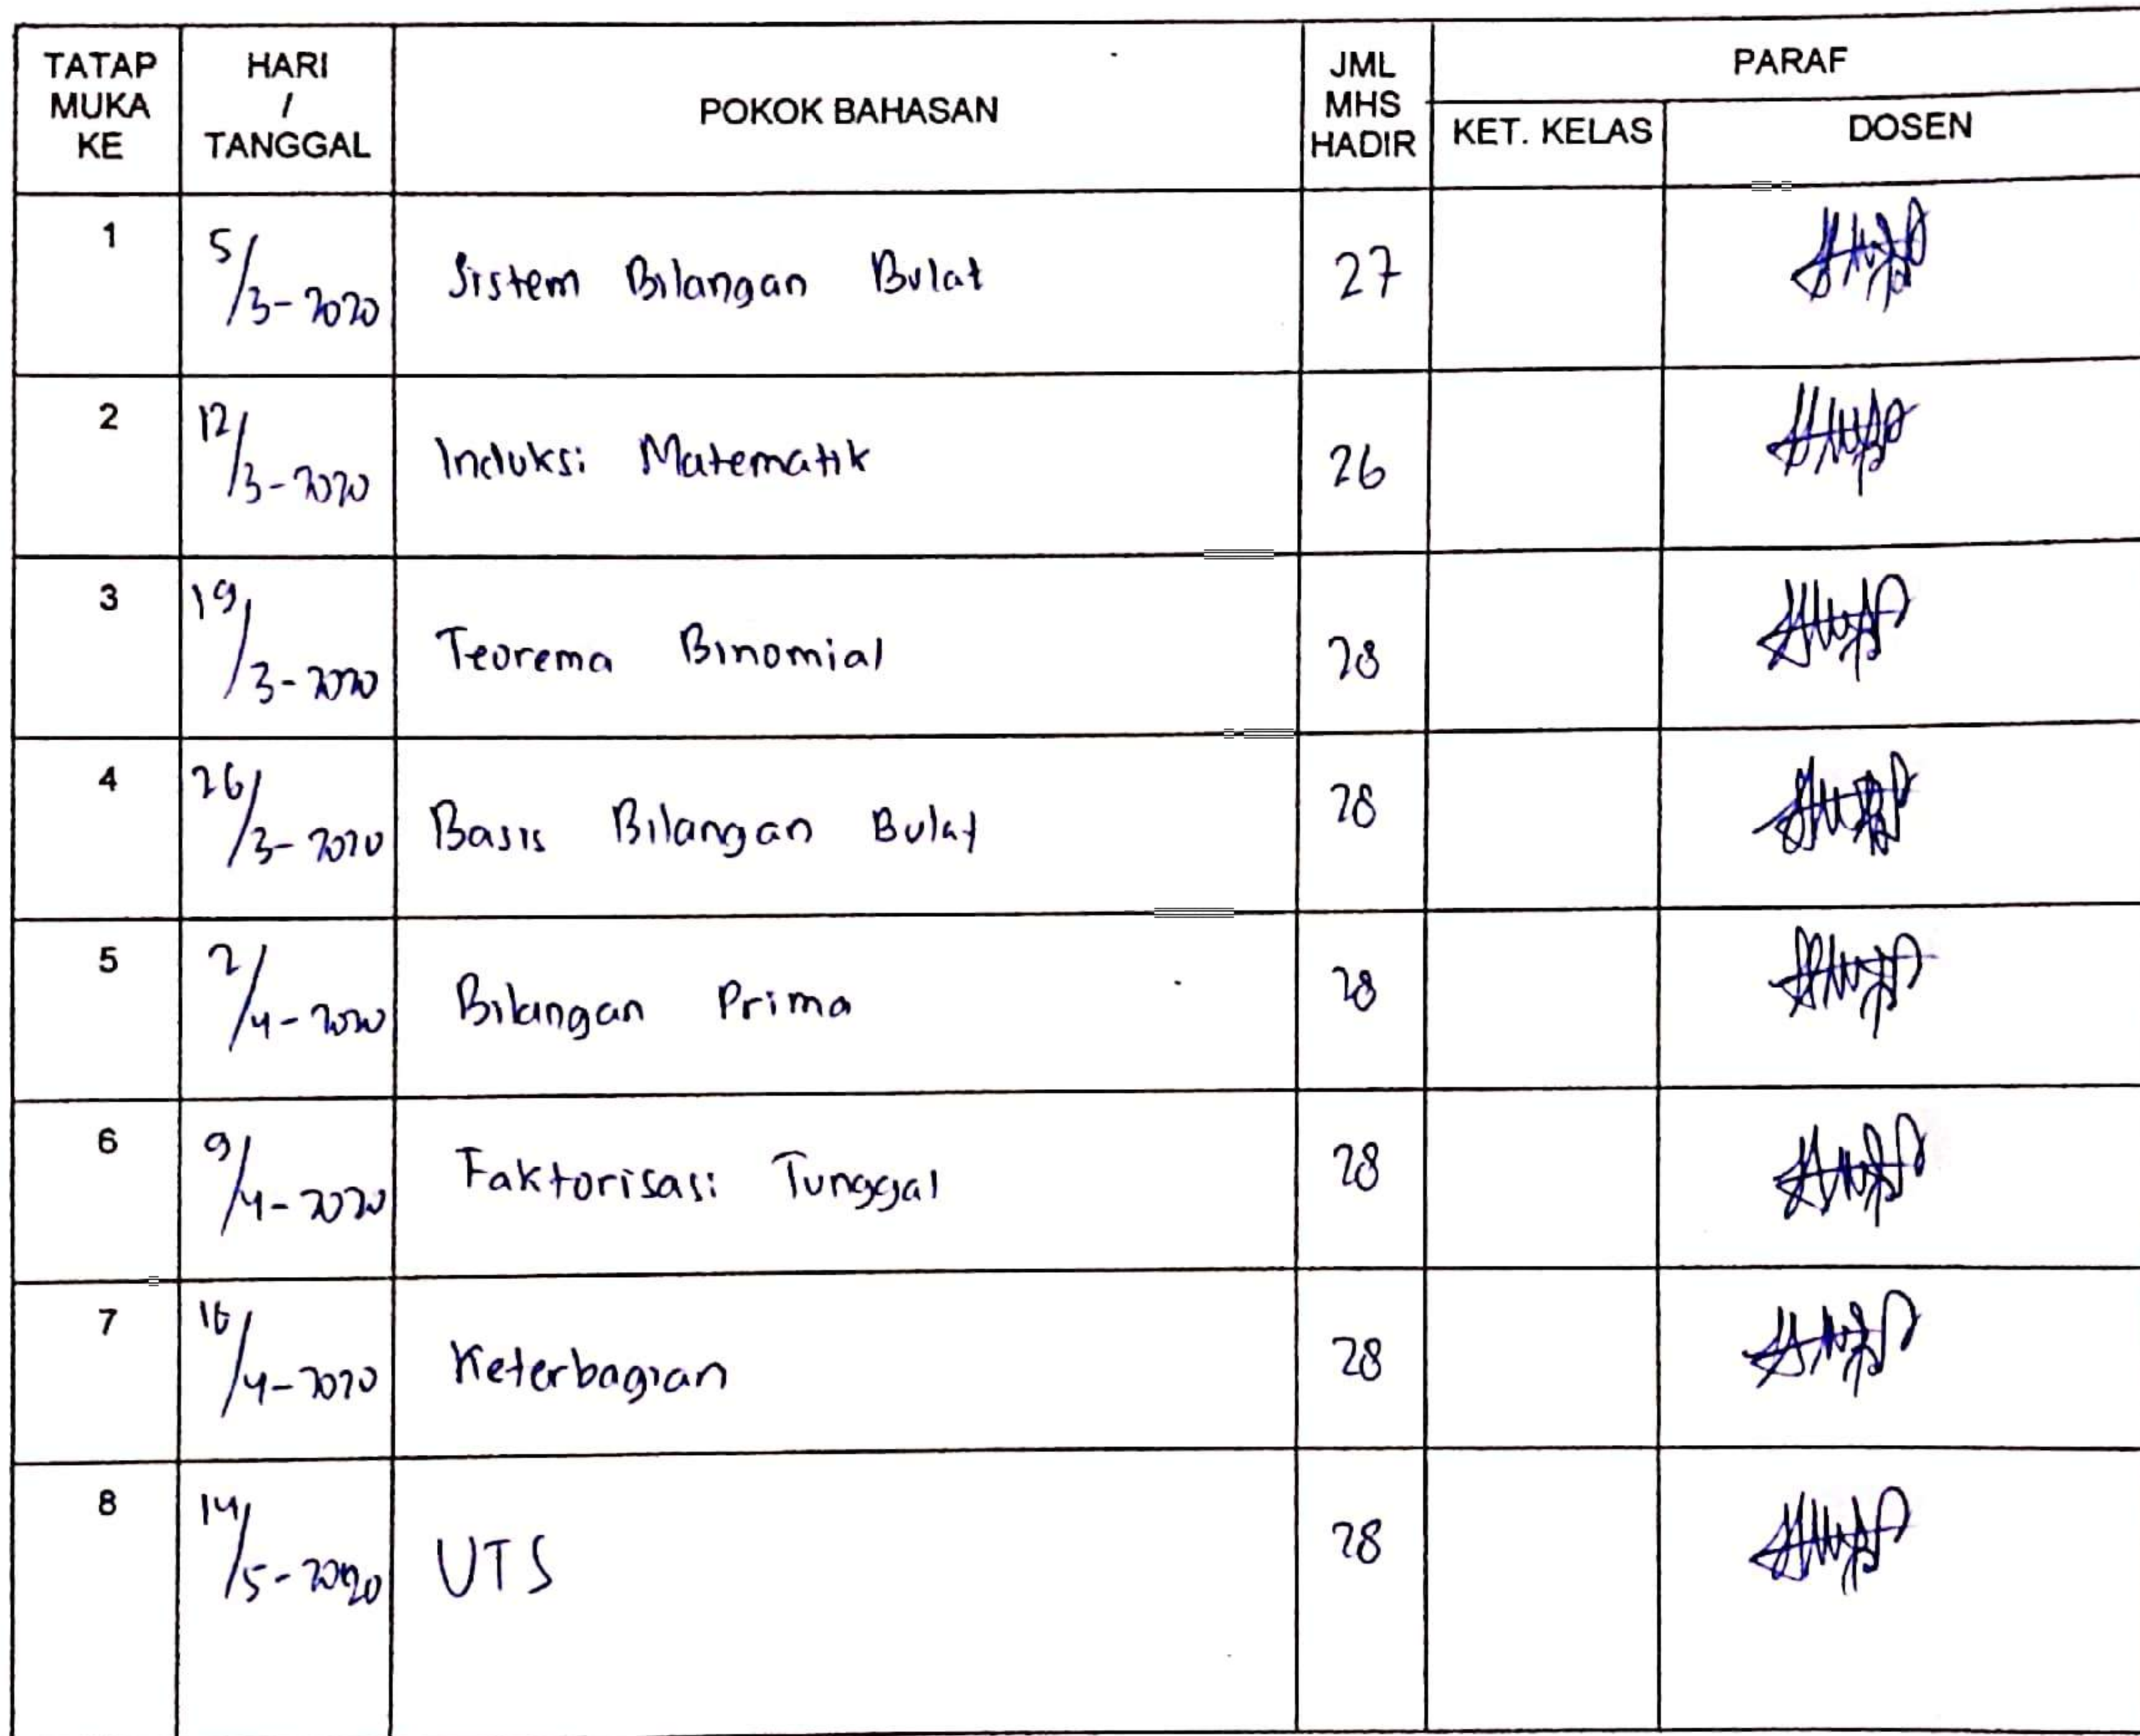 TATAP MUKA KE HARI / TANGGAL POKOK BAHASAN JML MHS HADIR PARAF
KET. KELAS DOSEN
1 5/3-2020 Sistem Bilangan Bulat 27
2 12/3-2020 Induksi Matematik 26
3 19/3-2020 Teorema Binomial 28
4 26/3-2020 Basis Bilangan Bulat 28
5 2/4-2020 Bilangan Prima 28
6 9/4-2020 Faktorisasi Tunggal 28
7 16/4-2020 Keterbagian 28
8 14/5-2020 UTS 28